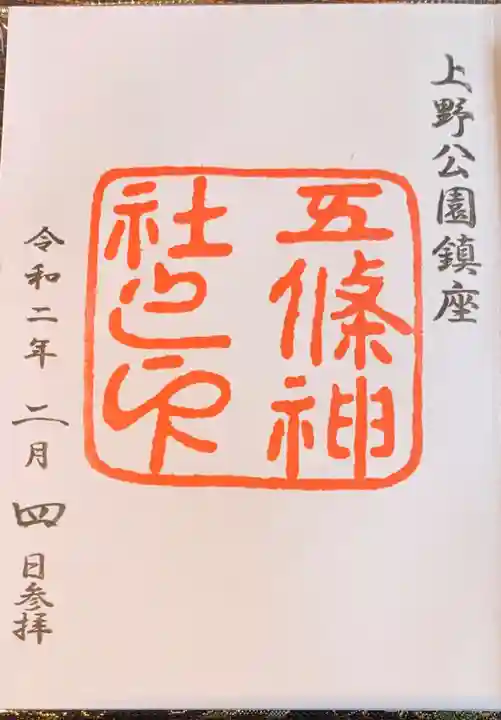 上野公園鎮座
五條神
社之印
令和二年 二月 四 日参拝